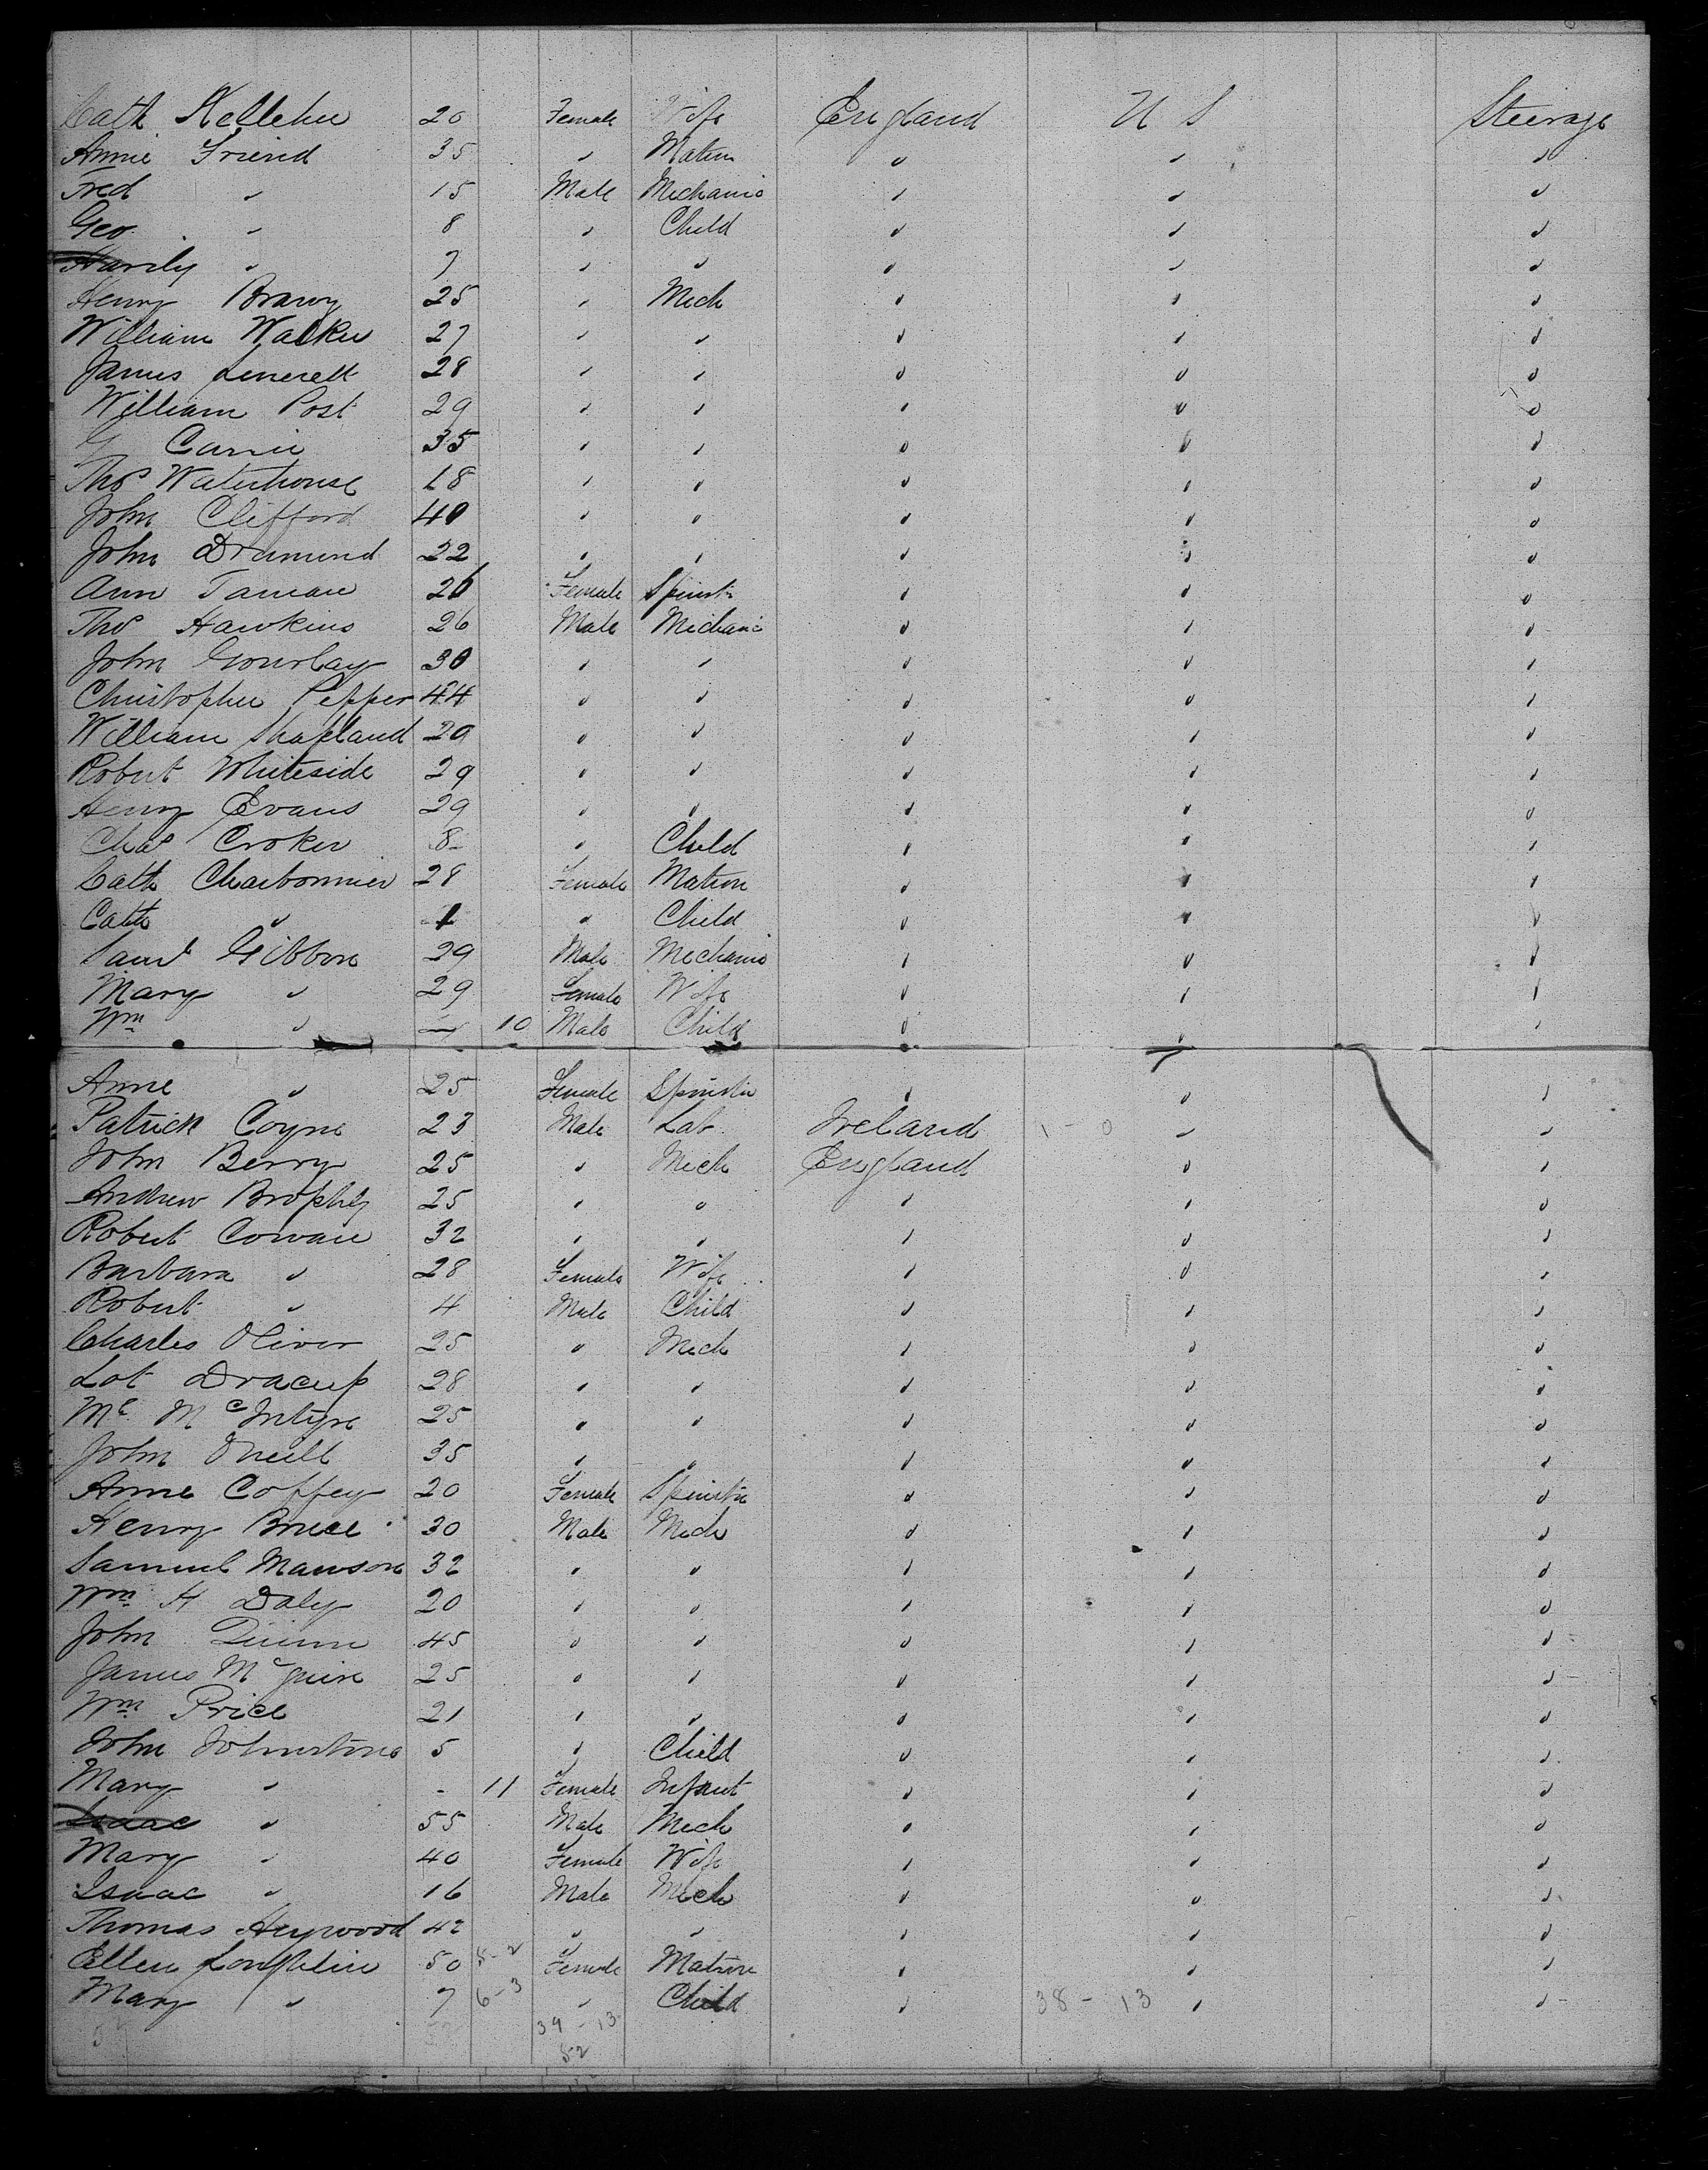 Cath Kelleher 20 Female Wife England U S Steerage
Annie Friend 35 " Matron " " "
Fred " 15 Male Mechanic " " "
Geo " 8 " Child " " "
Hardy " 7 " " " " "
Henry 25 " Mech " " "
William Walker 27 " " " " "
James Leverett 28 " " " " "
William Post 29 " " " " "
G Currie 35 " " " " "
Thos Waterhouse 18 " " " " "
John Clifford 40 " " " " "
John Drumund 22 " " " " "
Ann 26 Female Spinstr " " "
Thos Hawkins 26 Male Mechanic " " "
John Gourlay 30 " " " " "
Christopher Pepper 44 " " " " "
William Shapland 29 " " " " "
Robert Whiteside 29 " " " " "
Henry Evans 29 " " " " "
Chas Croker 8 " Child " " "
Cath Charbonnier 28 Female Matron " " "
Cath " 1 " Child " " "
Saml Gibbon 29 Male Mechanic " " "
Mary " 29 Female Wife " " "
Wm " — 10 Male Child " " "
Anne " 25 Female Spinster " " "
Patrick Coyne 23 Male Lab Ireland 1 - 0 " "
John Berry 25 " Mech England " "
Andrew Brophy 25 " " " " "
Robert Cowan 32 " " " " "
Barbara " 28 Female Wife " " "
Robert " 4 Male Child " " "
Charles Oliver 25 " Mech " " "
Lot Dracup 28 " " " " "
Mc McIntyre 25 " " " " "
John Oneill 35 " " " " "
Anne Coffey 20 Female Spinster " " "
Henry Bruce 30 Male Mech " " "
Samuel Mawson 32 " " " " "
Wm H Daly 20 " " " " "
John Quinn 45 " " " " "
James McGuire 25 " " " " "
Wm Price 21 " " " " "
John Johnstone 5 " Child " " "
Mary " - 11 Female Infant " " "
Isaac " 55 Male Mech " " "
Mary " 40 Female Wife " " "
Isaac " 16 Male Mech " " "
Thomas Heywood 42 " " " " "
Ellen Loughlin 50 5-2 Female Matron " " "
Mary " 7 6-3 " Child " 38 - 13 " "
39 - 13
52